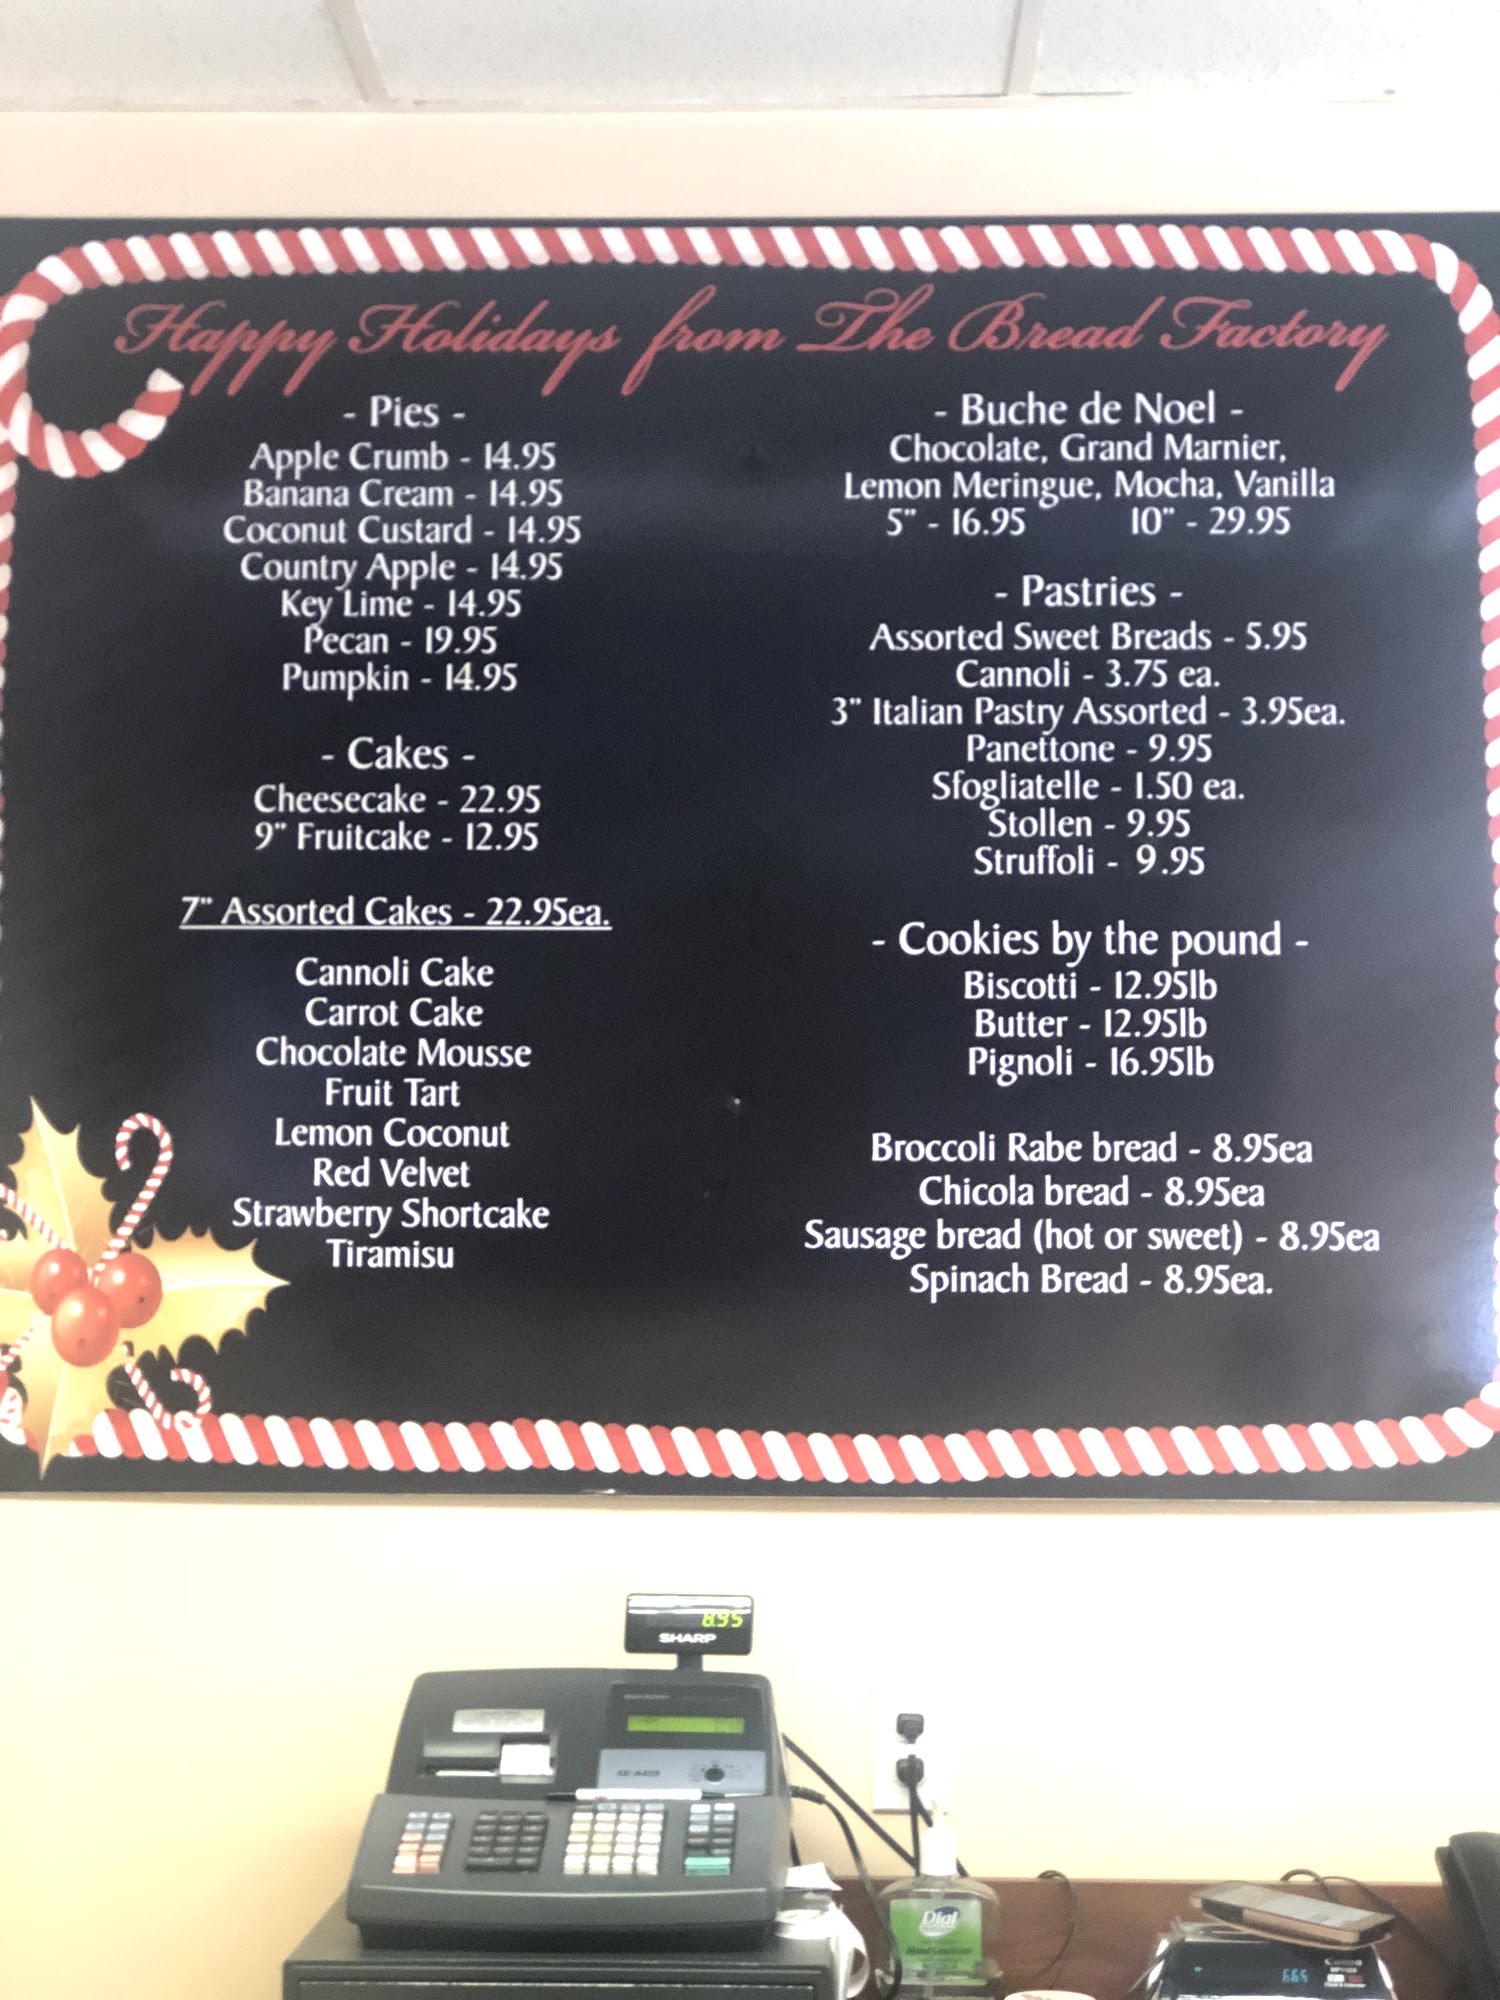 Happy Holidays from The Bread Factory
- Pies -
Apple Crumb - 14.95
Banana Cream - 14.95
Coconut Custard - 14.95
Country Apple - 14.95
Key Lime - 14.95
Pecan - 19.95
Pumpkin - 14.95
- Cakes -
Cheesecake - 22.95
9" Fruitcake - 12.95
7" Assorted Cakes - 22.95ea.
Cannoli Cake
Carrot Cake
Chocolate Mousse
Fruit Tart
Lemon Coconut
Red Velvet
Strawberry Shortcake
Tiramisu
- Buche de Noel -
Chocolate, Grand Marnier,
Lemon Meringue, Mocha, Vanilla
5" - 16.95 10" - 29.95
- Pastries -
Assorted Sweet Breads - 5.95
Cannoli - 3.75 ea.
3" Italian Pastry Assorted - 3.95ea.
Panettone - 9.95
Sfogliatelle - 1.50 ea.
Stollen - 9.95
Struffoli - 9.95
- Cookies by the pound -
Biscotti - 12.95lb
Butter - 12.95lb
Pignoli - 16.95lb
Broccoli Rabe bread - 8.95ea
Chicola bread - 8.95ea
Sausage bread (hot or sweet) - 8.95ea
Spinach Bread - 8.95ea.
8.95
SHARP
Dial
Hand Sanitizer
Canon